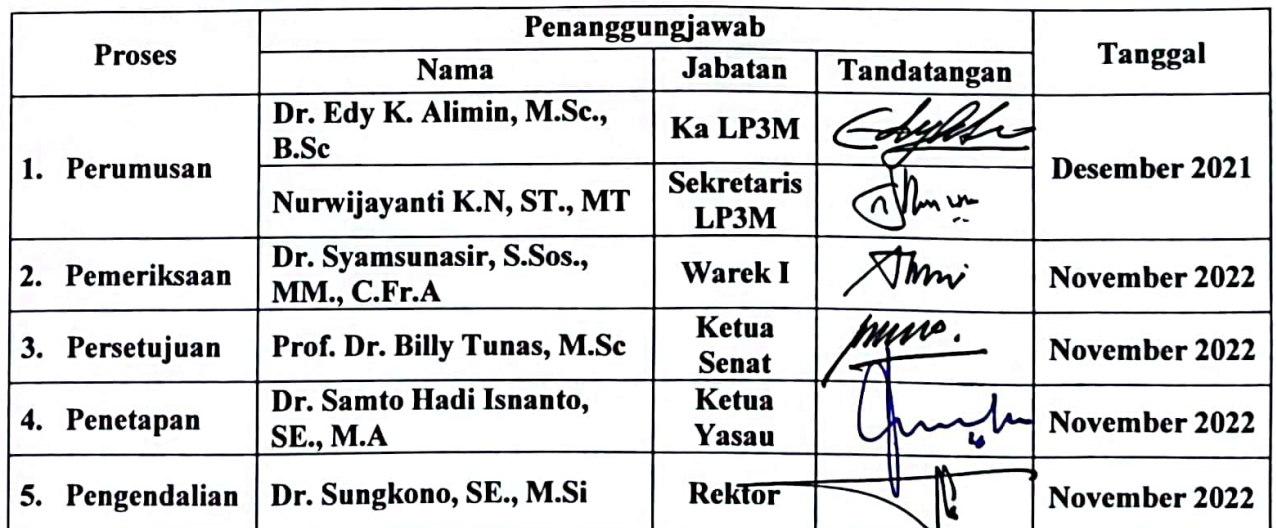 Proses
Penanggungjawab
Tanggal
Nama
Jabatan
Tandatangan
1. Perumusan
Dr. Edy K. Alimin, M.Sc.,
B.Sc
Ka LP3M
Desember 2021
Nurwijayanti K.N, ST., MT
Sekretaris
LP3M
2. Pemeriksaan
Dr. Syamsunasir, S.Sos.,
MM., C.Fr.A
Warek I
November 2022
3. Persetujuan
Prof. Dr. Billy Tunas, M.Sc
Ketua
Senat
November 2022
4. Penetapan
Dr. Samto Hadi Isnanto,
SE., M.A
Ketua
Yasau
November 2022
5. Pengendalian
Dr. Sungkono, SE., M.Si
Rektor
November 2022